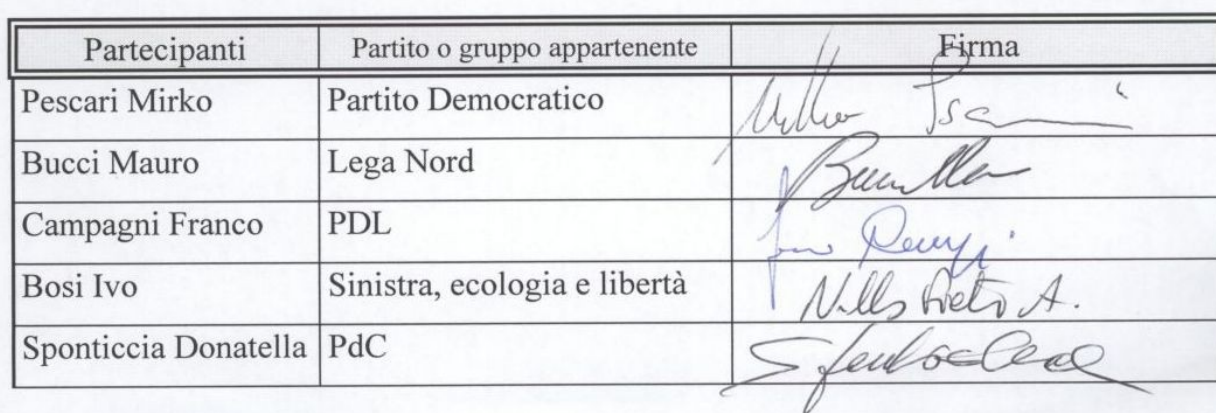 Partecipanti Partito o gruppo appartenente Firma
Pescari Mirko Partito Democratico
Bucci Mauro Lega Nord
Campagni Franco PDL
Bosi Ivo Sinistra, ecologia e libertà
Sponticcia Donatella PdC